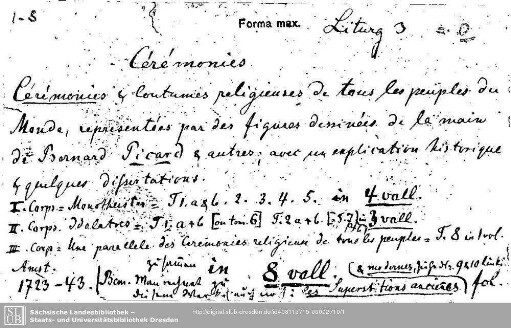 1-8
Forma max.
Liturg 3
Cérémonies
Cérémonies & Coutumes religieuses de tous les peuples du
Monde, representées par des figures dessinées de la main
de Bernard Picard & autres, avec un explication historique
& quelques dissertations.
I. Corps = Monotheistes = T 1. a & b. 2. 3. 4. 5. in 4 voll.
II. Corps. Idolatres = T 1. a + b [ou tom. 6] T. 2 a + b. = 3 voll.
III. Corp = Une parellele des Ceremonies religieux de tous les peuples = T. 8 in 1 vol.
Amst. zusamen in 8 voll. fol.
1723-43. Superstitions anciennes
Sächsische Landesbibliothek –
Staats- und Universitätsbibliothek Dresden